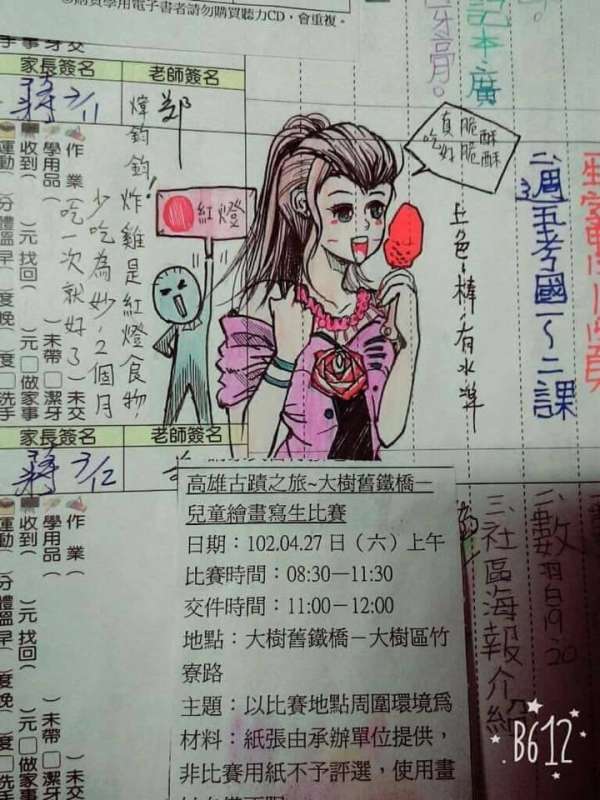 購買學用電子書者請勿購買聽力CD，會重複。
家長簽名
老師簽名
蔣3/11
鄭
煒鈞鈞！炸雞是紅燈食物
少吃為妙，2個月
吃一次就好了
紅燈
真脆酥
吃好脆酥
上色：棒，有水準
記本、廣
牙膏。
二、週五考國一~二課
作業（ ）未交
學用品（ ）未帶
收到（ ）元 找回（ ）元
運動（ ）分 體溫早（ ）度 晚（ ）度
□潔牙
□做家事
□洗手
家長簽名
老師簽名
蔣3/12
高雄古蹟之旅~大樹舊鐵橋－
兒童繪畫寫生比賽
日期：102.04.27日（六）上午
比賽時間：08:30－11:30
交件時間：11:00－12:00
地點：大樹舊鐵橋－大樹區竹
寮路
主題：以比賽地點周圍環境為
材料：紙張由承辦單位提供，
非比賽用紙不予評選，使用畫
二、數習19.20
三、社區海報介紹
作業（
學用品（
收到（ ）元 找回（ ）元
運動（ ）分 體溫早（ ）度
□未帶
□做家事
B612